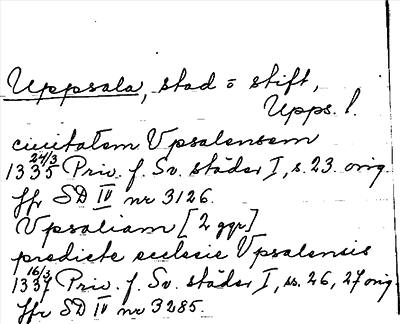 Uppsala, stad o stift,
Upps. l.
civitatem Vpsalensem
1335 24/3 Priv. f. Sv. städer I, s. 23. orig.
Jfr SD IV nr 3126.
Vpsaliam [2 ggr]
predicte ecclesie Vpsalensis
1337 16/3 Priv. f. Sv. städer I, ss. 26, 27 orig.
Jfr SD IV nr 3285.